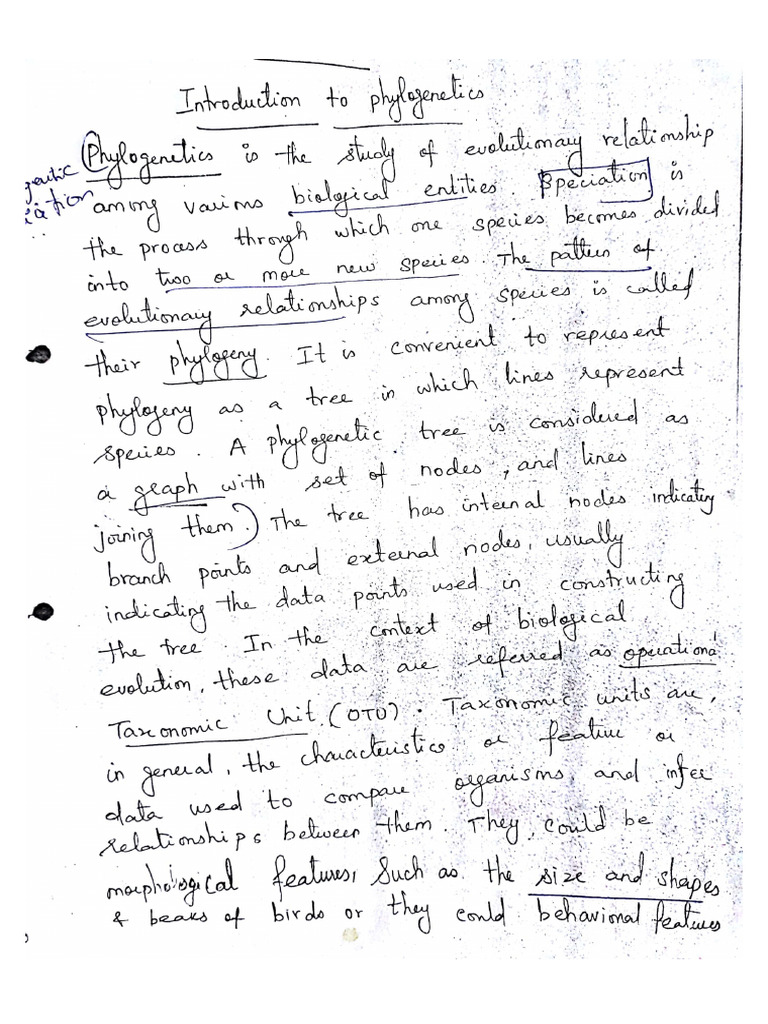 Introduction to phylogenetics
Phylogenetics is the study of evolutionary relationship
among various biological entities. Speciation is
the process through which one species becomes divided
into two or more new species. The pattern of
evolutionary relationships among species is called
their phylogeny. It is convenient to represent
phylogeny as a tree in which lines represent
species. A phylogenetic tree is considered as
a graph with set of nodes, and lines
joining them. The tree has internal nodes indicating
branch points and external nodes, usually
indicating the data points used in constructing
the tree. In the context of biological
evolution, these data are referred as operational
Taxonomic Unit (OTU). Taxonomic units are,
in general, the characteristics or feature or
data used to compare organisms and infer
relationships between them. They, could be
morphological features, such as the size and shapes
& beaks of birds or they could behavioral features